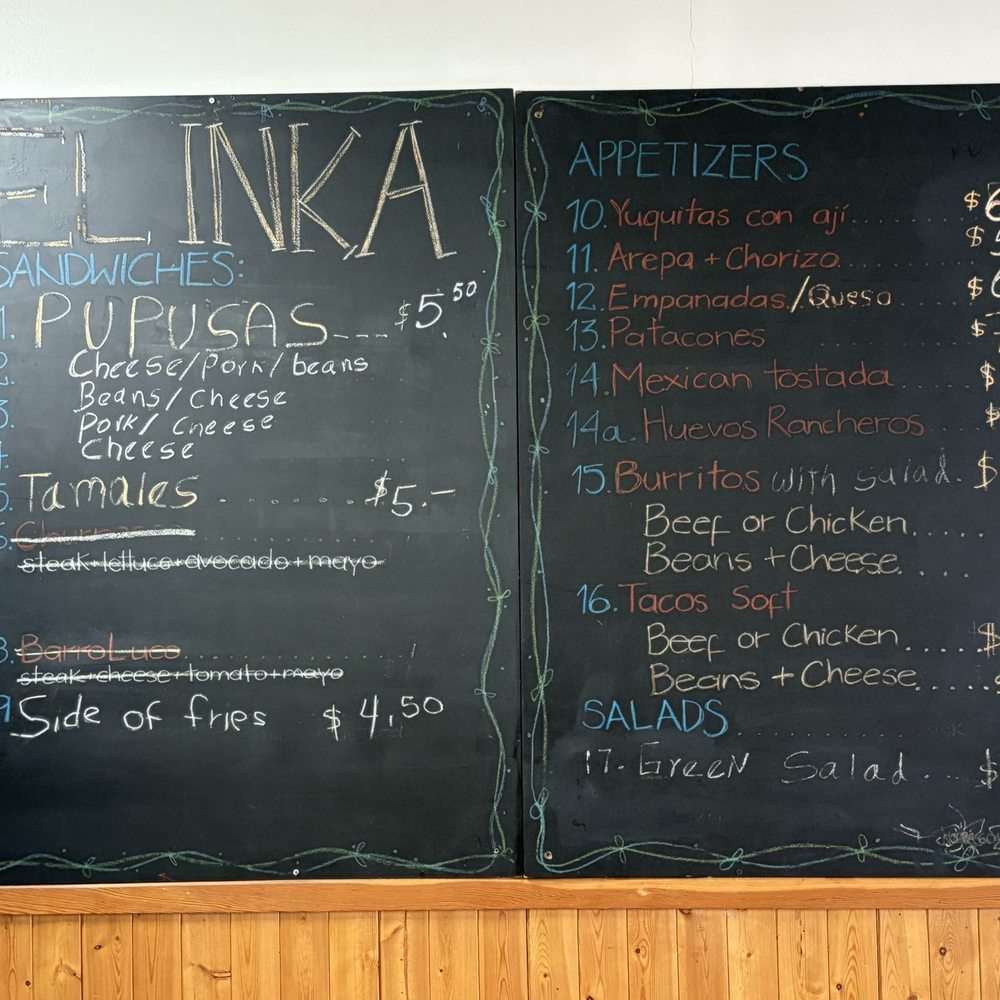 EL INKA
SANDWICHES:
1. PUPUSAS --- $5.50
2. Cheese/Pork/beans
3. Beans/Cheese
Pork/Cheese
Cheese
Tamales ........ $5.-
Churrasco
steak+lettuce+avocado+mayo
8. BarroLuco
steak+cheese+tomato+mayo
9 Side of fries $4.50
APPETIZERS
10. Yuquitas con ají ...... $6
11. Arepa + Chorizo ...... $5
12. Empanadas/Queso ...... $6
13. Patacones ...... $
14. Mexican tostada ...... $
14a. Huevos Rancheros ...... $
15. Burritos with salad. $
Beef or Chicken.....
Beans + Cheese.....
16. Tacos Soft
Beef or Chicken..... $
Beans + Cheese.....
SALADS
17. Green Salad ... $